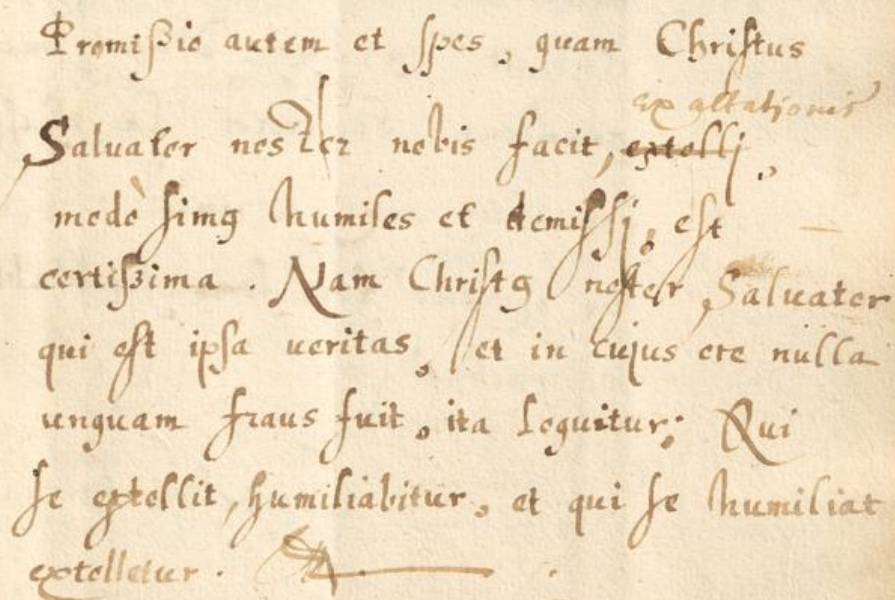 Promissio autem et spes, quam Christus
exaltationis
Saluator noster nobis facit, extolli,
modò simq humiles et demissi, est
certissima. Nam Christq noster Saluator
qui est ipsa ueritas, et in cujus ore nulla
unquam fraus fuit, ita loquitur; Qui
se extollit, humiliabitur, et qui se humiliat
extolletur.